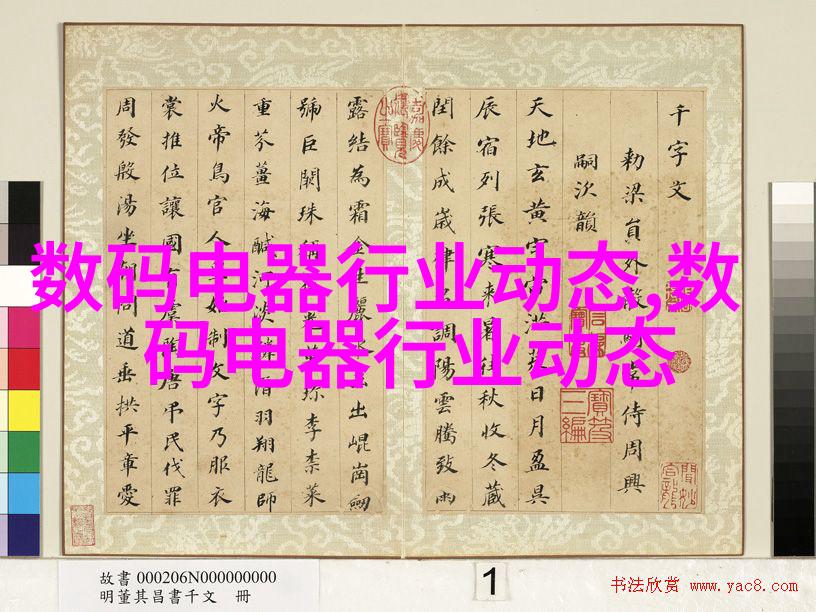 千字文
勑梁員外散常侍周興
嗣次韻
天地玄黃宇宙洪荒日月盈昃
辰宿列張寒来暑往秋收冬藏
閏餘成歲律調陽雲騰致雨
露結為霜金生麗出崐崗劒
號巨闕珠稱珍李柰菜
重芥薑海鹹河淡鱗潛羽翔龍師
火帝鳥官人始制文字乃服衣
裳推位讓國有虞陶唐弔民伐罪
周發殷湯坐朝問道垂拱平章愛
嘉慶御覽之寶
寶笈三編
数码电器行业动态,数
码电器行业动态
故書 000206N000000000
明董其昌書千文 冊
1
书法欣赏 www.yac8.com